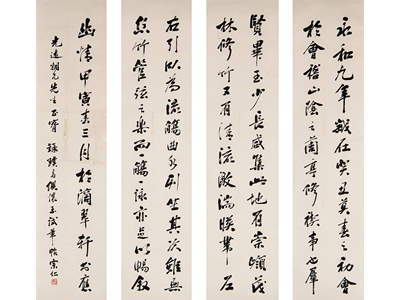 永和九年歲在癸丑暮春之初會
於會稽山陰之蘭亭修禊事也羣
賢畢至少長咸集此地有崇嶺茂
林修竹又有清流激湍映帶左
右引以為流觴曲水列坐其次雖無
絲竹管弦之樂一觴一詠亦足以暢敘
幽情甲寅春三月於滴翠軒書應
光遠 兄先生正